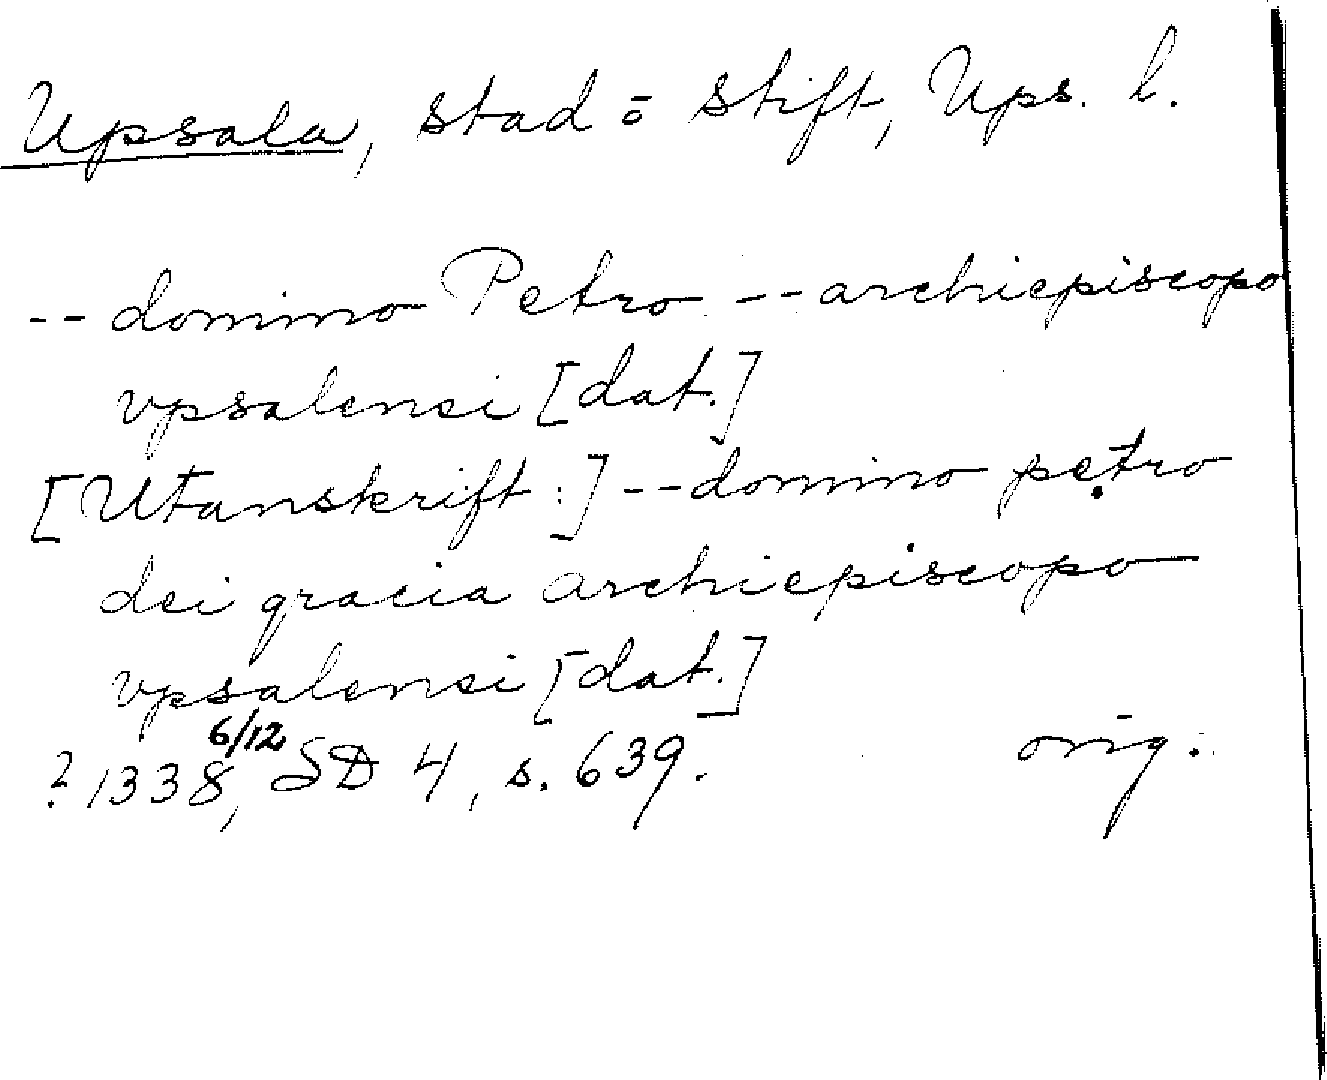 Upsala, stad o stift, Ups. l.
-- domino Petro -- archiepiscopo
vpsalensi [dat.]
[Utanskrift:] -- domino petro
dei gracia archiepiscopo
vpsalensi [dat.]
? 1338 6/12, SD 4, s. 639. orig.